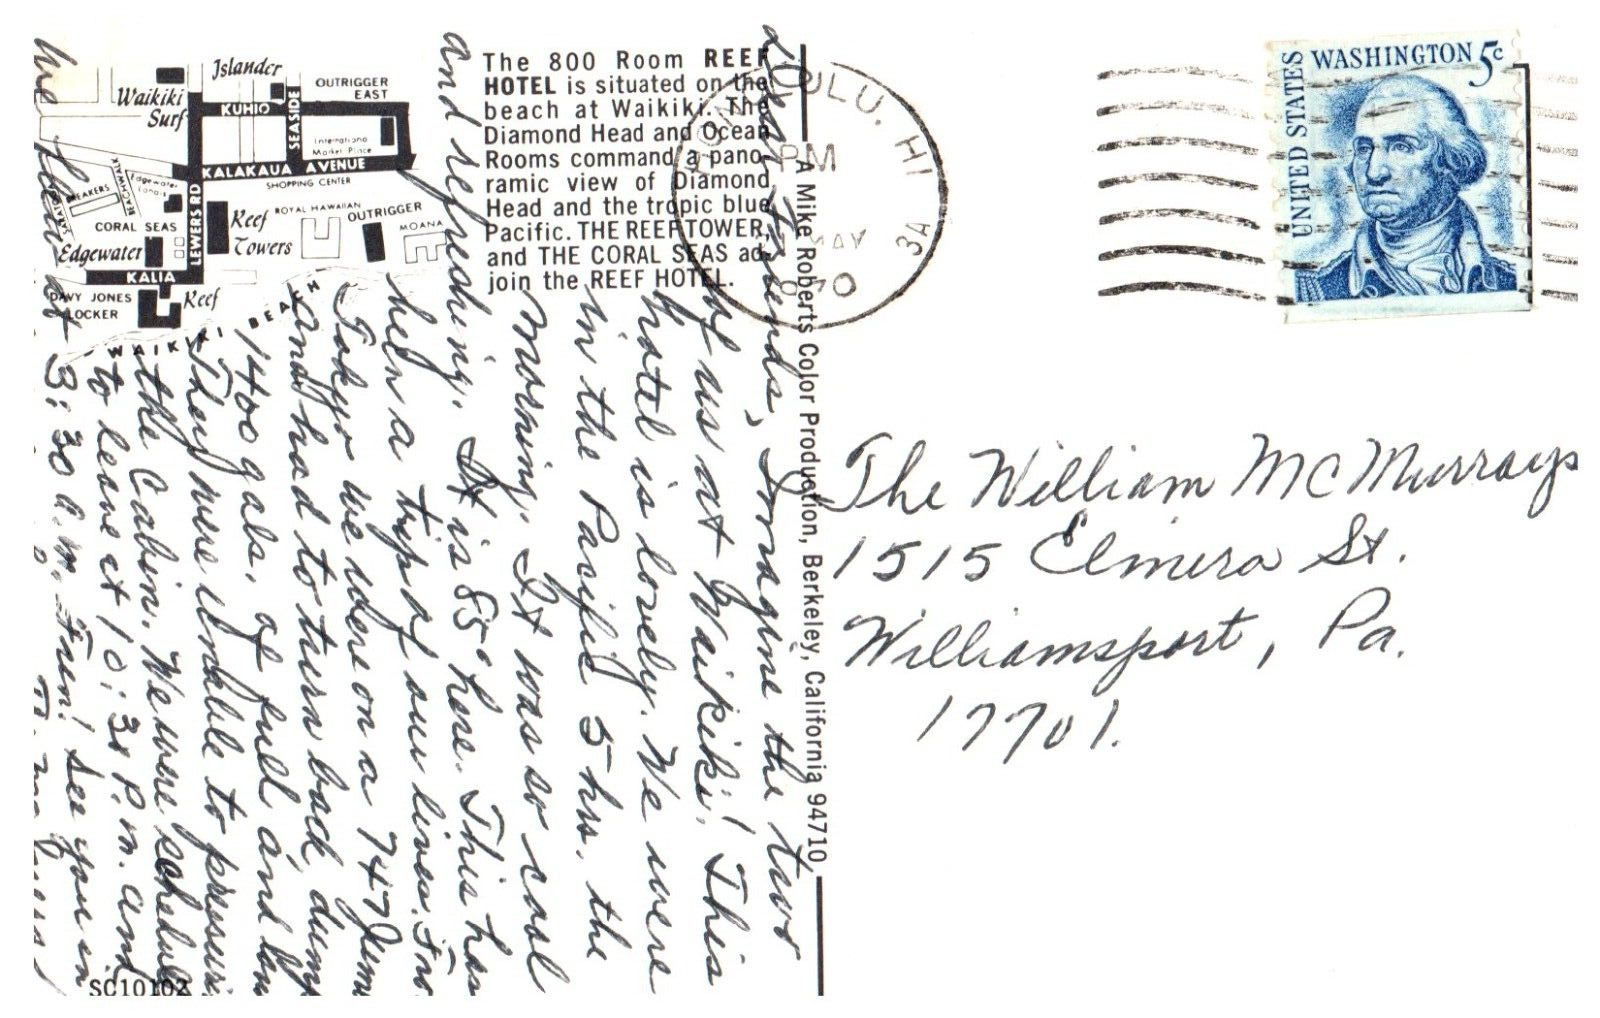 The 800 Room REEF
HOTEL is situated on the
beach at Waikiki. The
Diamond Head and Ocean
Rooms command a pano-
ramic view of Diamond
Head and the tropic blue
Pacific. THE REEF TOWER,
and THE CORAL SEAS ad-
join the REEF HOTEL.
Islander
OUTRIGGER
EAST
Waikiki
Surf
KUHIO
SEASIDE
International
Market Place
KALAKAUA AVENUE
SHOPPING CENTER
BREAKERS
BEACHWALK
Edgewater
Lanais
SARATOGA
CORAL SEAS
LEWERS RD
Reef
Towers
ROYAL HAWAIIAN
OUTRIGGER
MOANA
Edgewater
KALIA
DAVY JONES
LOCKER
Reef
WAIKIKI BEACH
Dear Friends, Imagine the two
of us at Waikiki! This
hotel is lovely. We were
in the Pacific 5 hrs. the
morning. It was so cool
and refreshing. It is 85° here. This has
been a trip of our lives. From
Tokyo we were on a 747
and had to turn back, dump
1400 gals. of fuel and
They were unable to
the Cabin. We were
to leave at 10:30 P.m. and
we flew at 3:30 a.m. Fun! See you in
SC10102
A Mike Roberts Color Production, Berkeley, California 94710
HONOLULU, HI
PM
MAY
1970
3A
UNITED STATES
WASHINGTON 5c
The William McMurrays
1515 Elmira St.
Williamsport, Pa.
17701.